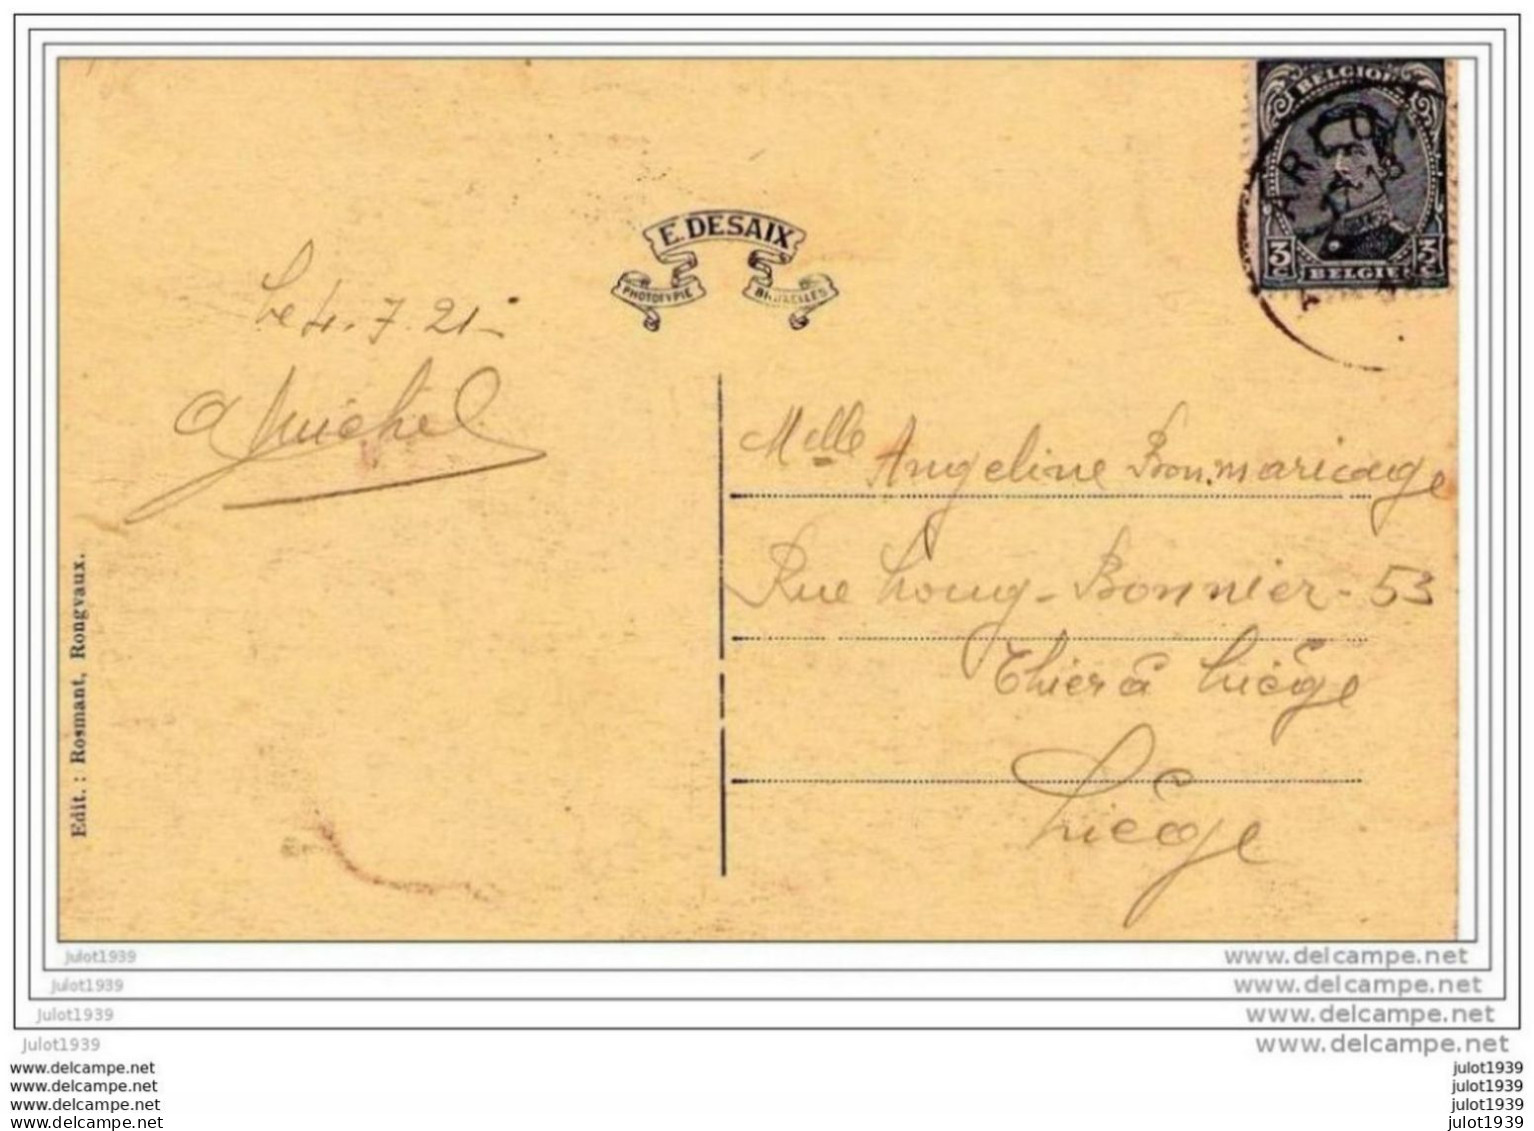 BELGIQUE
ARLON
3 BELGIË 3
E. DESAIX
PHOTOTYPIE BRUXELLES
Le 4. 7. 21 -
A Michel
Melle Angeline Bonmariage
Rue Louy - Bonnier - 53
Thier à Liège
Liège
Edit. : Rosmant, Rongvaux.
julot1939 www.delcampe.net
julot1939 www.delcampe.net
julot1939 www.delcampe.net
julot1939 www.delcampe.net
www.delcampe.net julot1939
www.delcampe.net julot1939
www.delcampe.net julot1939
www.delcampe.net julot1939